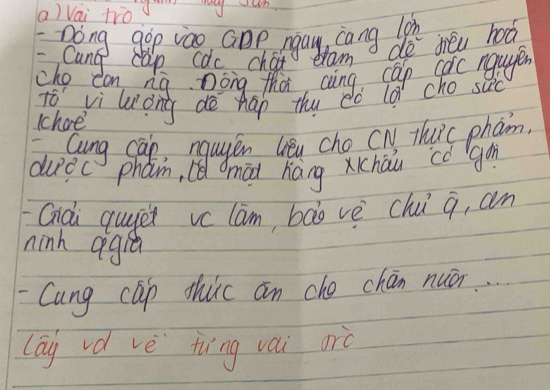 a) Vai trò
- Đóng góp vào GDP ngày càng lớn
- Cung cấp các chất đạm dễ tiêu hoá
cho con ng. Đồng thời cung cấp các nguyên
tố vi lượng dễ hấp thụ có lợi cho sức
khoẻ
- Cung cấp nguyên liệu cho CN thực phẩm,
dược phẩm, là mặt hàng xkhẩu có gtrị
- Giải quyết vc làm, bảo vệ chủ q, an
ninh qgia
- Cung cấp thức ăn cho chăn nuôi...
Lấy vd về từng vai trò